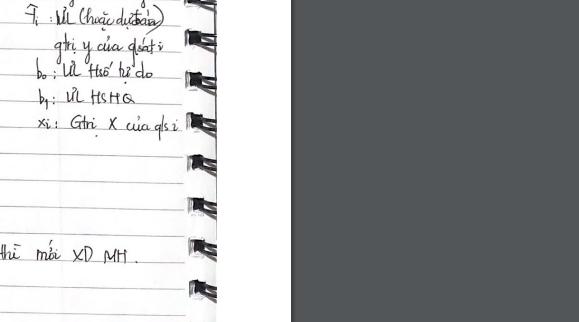 Ŷi : ƯL (hoặc dự toán)
gtrị y của qsát i
b₀ : ƯL Hsố tự do
b₁ : ƯL HSHQ
xi : Gtrị X của qs i
thì mới XD MH.